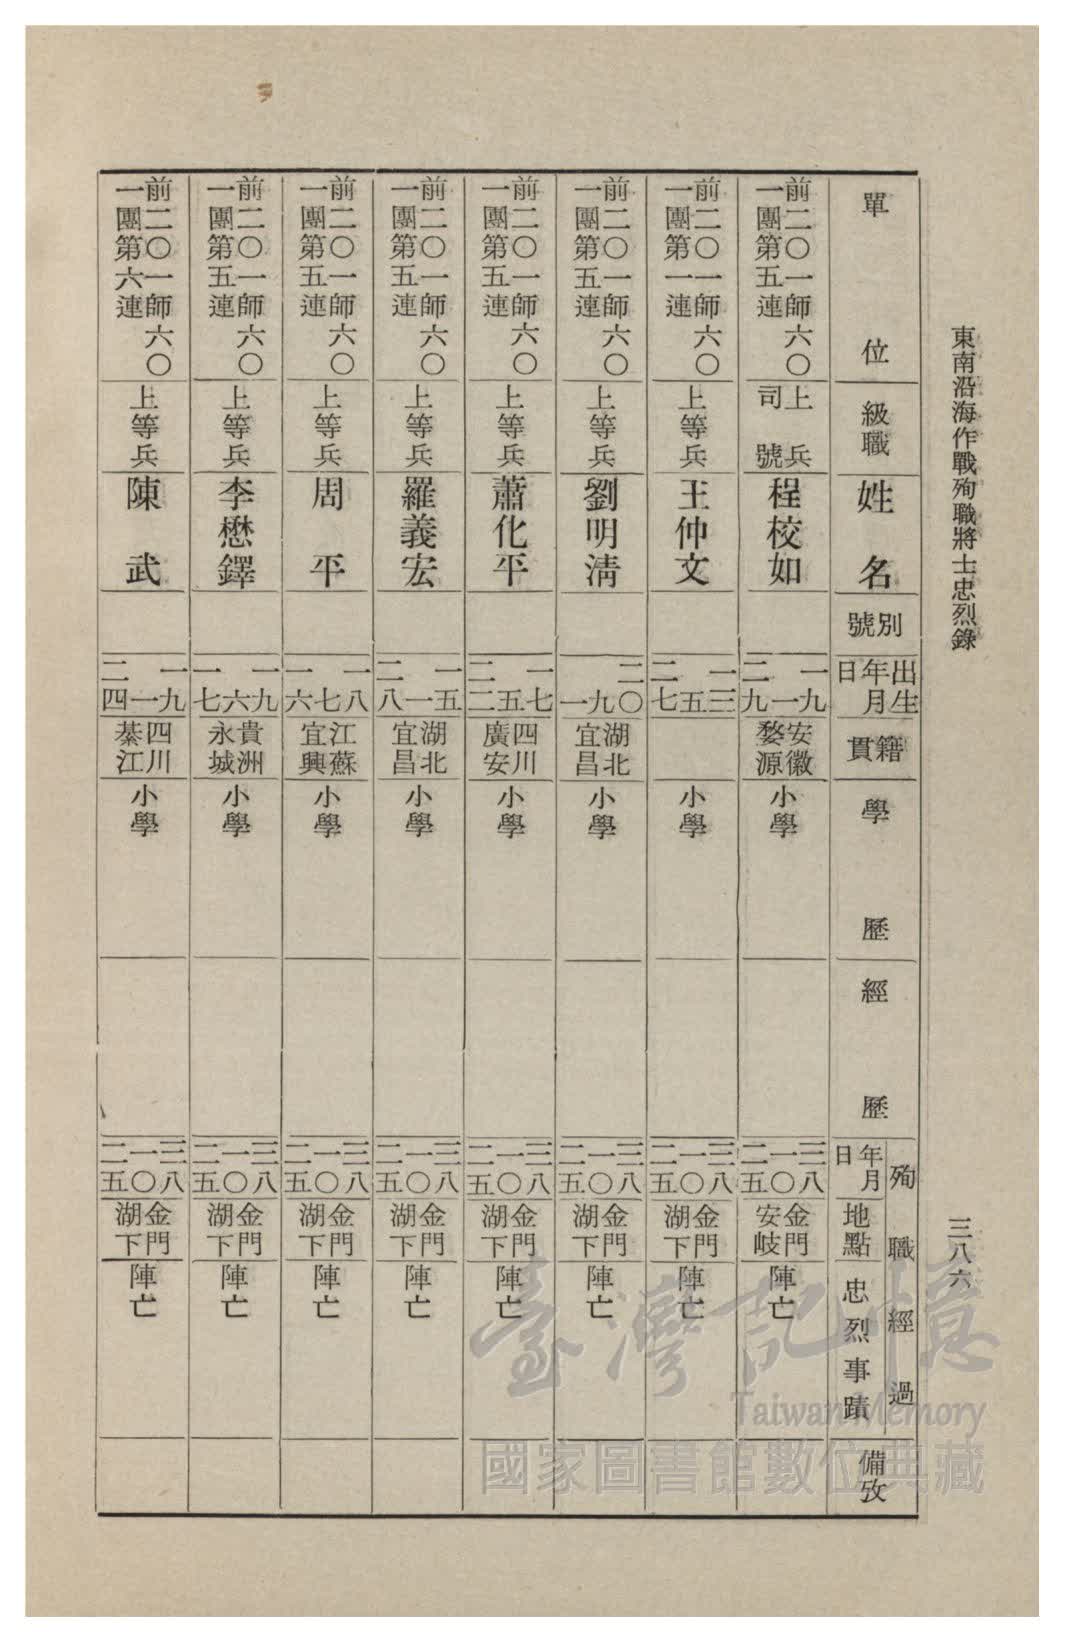 東南沿海作戰殉職將士忠烈錄
三八六
單位
級職
姓名
別號
出生年月日
籍貫
學歷
經歷
殉職經過
年月日
地點
忠烈事蹟
備攷
前二〇一師六〇
一團第五連
上兵
司號
程校如
一九
一
二九
安徽
婺源
小學
三八
一〇
二五
金門
安岐
陣亡
前二〇一師六〇
一團第一連
上等兵
王仲文
一三
五
二七
小學
三八
一〇
二五
金門
湖下
陣亡
前二〇一師六〇
一團第五連
上等兵
劉明清
二〇
九
一
湖北
宜昌
小學
三八
一〇
二五
金門
湖下
陣亡
前二〇一師六〇
一團第五連
上等兵
蕭化平
一七
五
二二
四川
廣安
小學
三八
一〇
二五
金門
湖下
陣亡
前二〇一師六〇
一團第五連
上等兵
羅義宏
一五
一
二八
湖北
宜昌
小學
三八
一〇
二五
金門
湖下
陣亡
前二〇一師六〇
一團第五連
上等兵
周平
一八
七
一六
江蘇
宜興
小學
三八
一〇
二五
金門
湖下
陣亡
前二〇一師六〇
一團第五連
上等兵
李懋鐸
一九
六
一七
貴洲
永城
小學
三八
一〇
二五
金門
湖下
陣亡
前二〇一師六〇
一團第六連
上等兵
陳武
一九
一
二四
四川
綦江
小學
三八
一〇
二五
金門
湖下
陣亡
臺灣記憶
Taiwan Memory
國家圖書館數位典藏